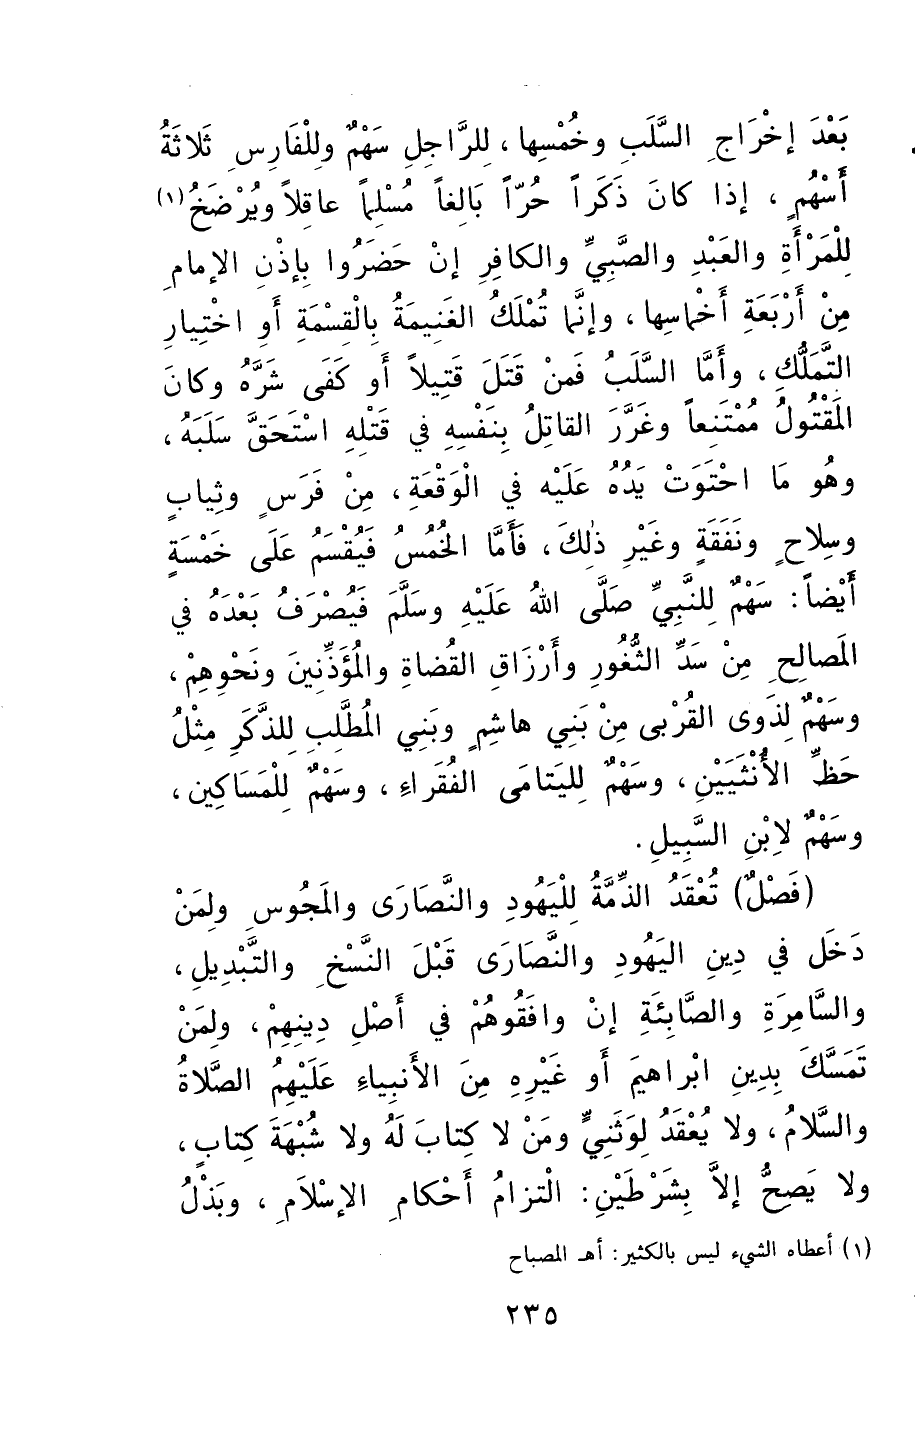 بَعْدَ إخْرَاجِ السَّلَبِ وخُمْسِها ، لِلرَّاجِلِ سَهْمٌ وللْفَارِسِ ثَلاثَةُ
أَسْهُمٍ ، إذا كانَ ذَكَراً حُرّاً بَالِغاً مُسْلِماً عاقِلاً ويُرْضَخُ(١)
لِلْمَرْأَةِ والعَبْدِ والصَّبِيِّ والكافِرِ إنْ حَضَرُوا بِإذْنِ الإمامِ
مِنْ أَرْبَعَةِ أَخْماسِها ، وإنَّما تُمْلَكُ الغَنِيمَةُ بِالْقِسْمَةِ أَوِ اخْتِيارِ
التَّمَلُّكِ ، وأَمَّا السَّلَبُ فَمنْ قَتَلَ قَتِيلاً أَو كَفَى شَرَّهُ وكانَ
المَقْتُولُ مُمْتَنِعاً وغَرَّرَ القاتِلُ بِنَفْسِهِ في قَتْلِهِ اسْتَحَقَّ سَلَبَهُ ،
وهُو مَا احْتَوَتْ يَدُهُ عَلَيْه في الْوَقْعَةِ ، مِنْ فَرَسٍ وثِيابٍ
وسِلاحٍ ونَفَقَةٍ وغَيْرِ ذٰلِكَ ، فَأَمَّا الخُمُسُ فَيُقْسَمُ عَلَى خَمْسَةٍ
أَيْضاً : سَهْمٌ لِلنَّبِيِّ صَلَّى اللهُ عَلَيْهِ وسَلَّمَ فَيُصْرَفُ بَعْدَهُ في
المَصالِحِ مِنْ سَدِّ الثُّغُورِ وأَرْزَاقِ القُضاةِ والمُؤَذِّنِينَ ونَحْوِهِمْ ،
وسَهْمٌ لِذَوى القُرْبى مِنْ بَنِي هاشِمٍ وبَنِي المُطَّلِبِ لِلذَّكَرِ مِثْلُ
حَظِّ الأُنْثَيَيْنِ ، وسَهْمٌ لِليَتامَى الفُقَراءِ ، وسَهْمٌ لِلْمَسَاكِينِ ،
وسَهْمٌ لاِبْنِ السَّبِيلِ .
(فَصْلٌ) تُعْقَدُ الذِّمَّةُ لِلْيَهُودِ والنَّصَارَى والمَجُوسِ ولِمَنْ
دَخَلَ في دِينِ اليَهُودِ والنَّصَارَى قَبْلَ النَّسْخِ والتَّبْدِيلِ ،
والسَّامِرَةِ والصَّابِئَةِ إنْ وافَقُوهُمْ في أَصْلِ دِينِهِمْ ، ولِمَنْ
تَمَسَّكَ بِدِينِ ابْراهيمَ أَو غَيْرِهِ مِنَ الأَنبِياءِ عَلَيْهِمُ الصَّلاةُ
والسَّلامُ ، ولا يُعْقَدُ لِوَثَنِيٍّ ومَنْ لا كِتابَ لَهُ ولا شُبْهَةَ كِتابٍ ،
ولا يَصِحُّ إلاَّ بِشَرْطَيْنِ : الْتزامُ أَحْكامِ الإسْلاَمِ ، وبَذْلُ
(١) أعطاه الشيء ليس بالكثير : أهـ المصباح
٢٣٥